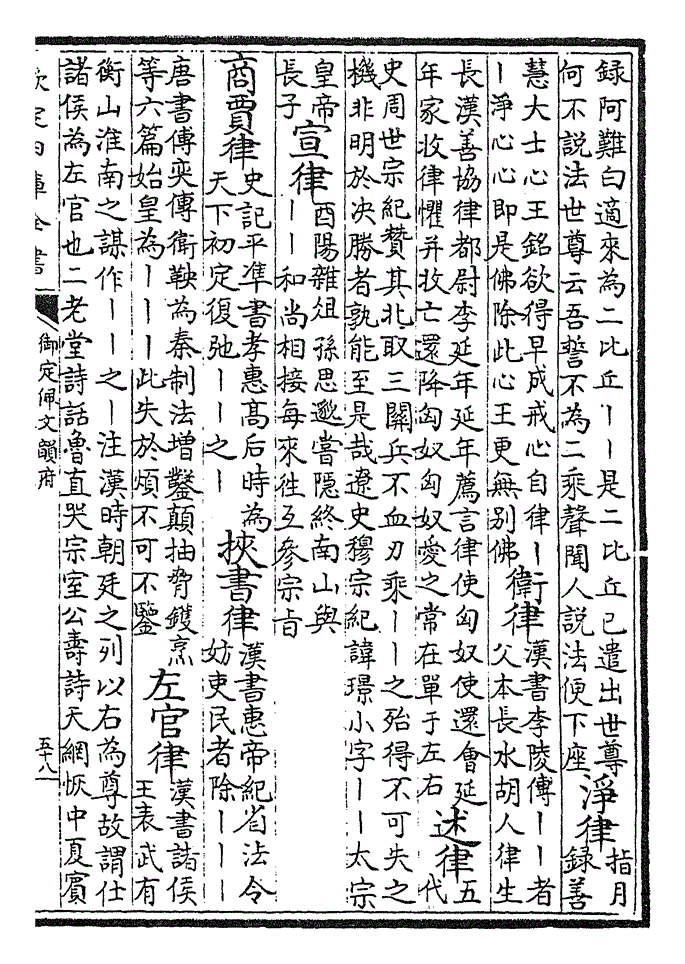 録阿難白適來為二比丘丨丨是二比丘已遣出世尊
何不説法世尊云吾誓不為二乘聲聞人説法便下座
淨律
指月
録善
慧大士心王銘欲得早成戒心自律丨
丨淨心心即是佛除此心王更無别佛
衛律
漢書李陵傳丨丨者
父本長水胡人律生
長漢善協律都尉李延年延年薦言律使匈奴使還會延
年家收律懼并收亡還降匈奴匈奴愛之常在單于左右
述律
五
代
史周世宗紀贊其北取三關兵不血刃乘丨丨之殆得不可失之
機非明於决勝者孰能至是哉遼史穆宗紀諱璟小字丨丨太宗
皇帝
長子
宣律
酉陽雜俎孫思邈嘗隠終南山與
丨丨和尚相接每來徃互參宗㫖
商賈律
史記平凖書孝惠髙后時為
天下初定復弛丨丨之丨
挾書律
漢書惠帝紀省法令
妨吏民者除丨丨丨
唐書傳奕傳衛鞅為秦制法增鑿顛抽脅鑊烹
等六篇始皇為丨丨丨此失於煩不可不鑒
左官律
漢書諸侯
王表武有
衡山淮南之謀作丨丨之丨注漢時朝廷之列以右為尊故謂仕
諸侯為左官也二老堂詩話魯直哭宗室公壽詩天網恢中夏賓
欽定四庫全書
御定佩文韻府
五十八